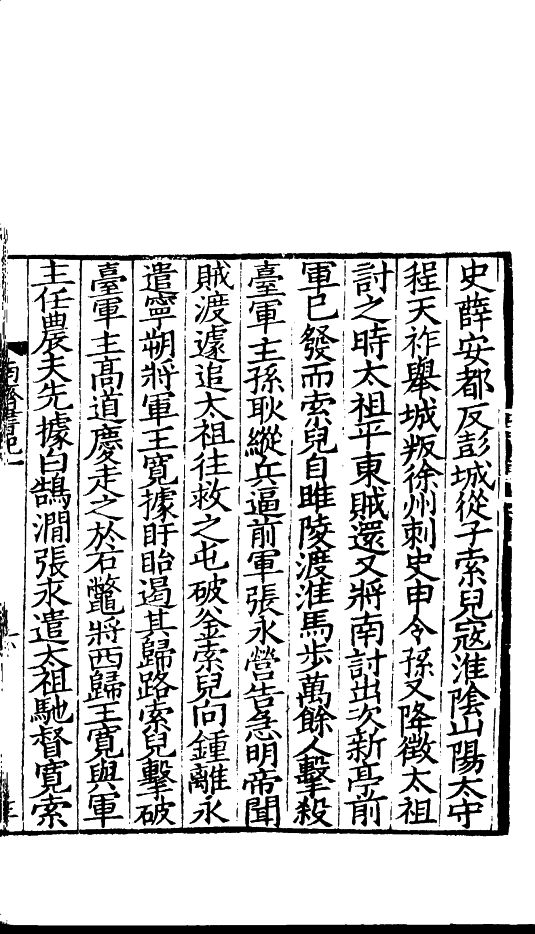 史薛安都反彭城從子索兒寇淮陰山陽太守
程天祚舉城叛徐州刺史申令孫又降徵太祖
討之時太祖平東賊還又將南討出次新亭前
軍已發而索兒自睢陵渡淮馬步萬餘人擊殺
臺軍主孫耿縱兵逼前軍張永營告急明帝聞
賊渡遽追太祖往救之屯破釜索兒向鍾離永
遣寧朔將軍王寬據盱眙遏其歸路索兒擊破
臺軍主高道慶走之於石鼈將西歸王寬與軍
主任農夫先據白鵠澗張永遣太祖馳督寬索